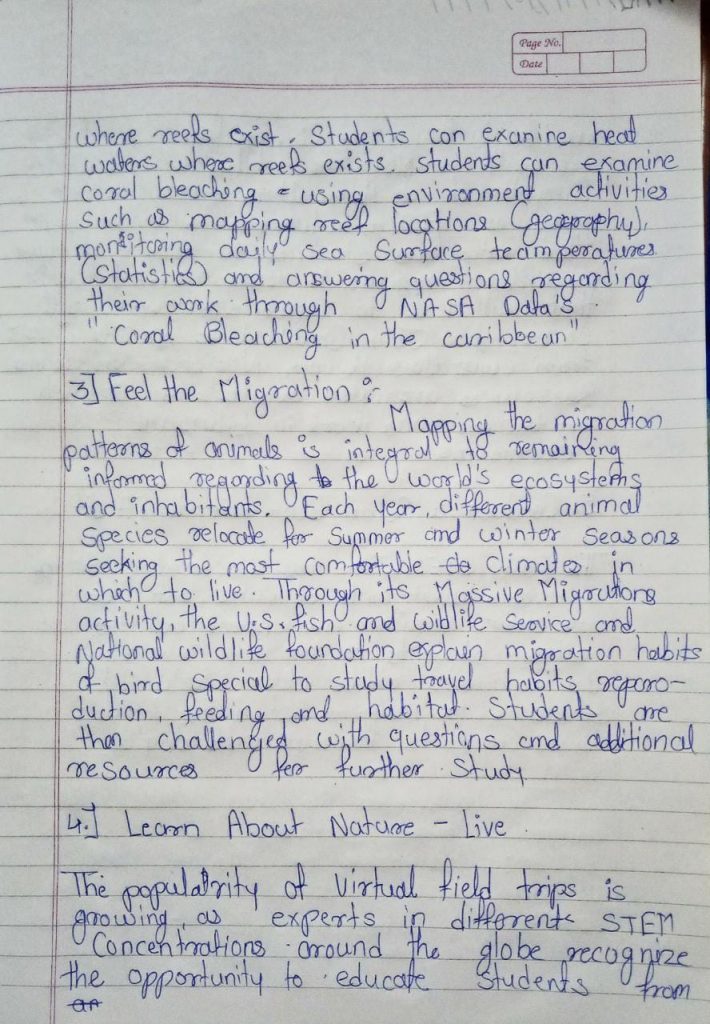 Page No.
Date
where reefs exist. Students can exanine heat
waters where reefs exists. students can examine
coral bleaching - using environment activities
such as mapping reef locations (geography),
monitoring daily sea surface teamperatures
(statistics) and answering questions regarding
their work through NASA Data's
"Coral Bleaching in the carribbean"
3] Feel the Migration :-
Mapping the migration
patterns of animals is integral to remaining
informed regarding the world's ecosystems
and inhabitants. Each year, different animal
species relocate for summer and winter seasons
seeking the most comfortable climates in
which to live. Through its Massive Migrations
activity, the U.S. fish and wildlife service and
National wildlife foundation explain migration habits
of bird special to study travel habits reporo-
duction, feeding and habitat. Students are
than challenged with questions and additional
resources for further study
4.] Learn About Nature - Live
The popularity of virtual field trips is
growing as experts in different STEM
Concentrations around the globe recognize
the opportunity to educate students from